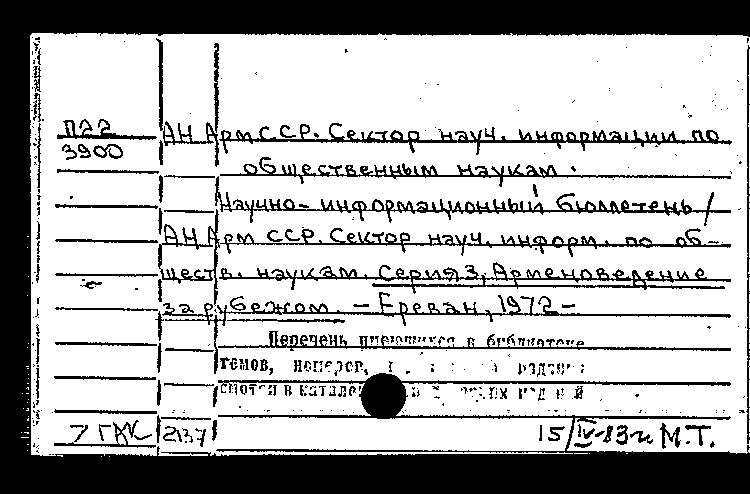 П22 АН АрмССР. Сектор науч. информации по
3900 общественным наукам.
Научно-информационный бюллетень /
АН Арм ССР. Сектор науч. информ. по об-
ществ. наукам. Серия 3, Арменоведение
за рубежом. - Ереван, 1972 -
Перечень имеющихся в библиотеке
томов, номеров,
смотри в каталоге
7 ГАК 2137 15/IV-83 г. М.Т.